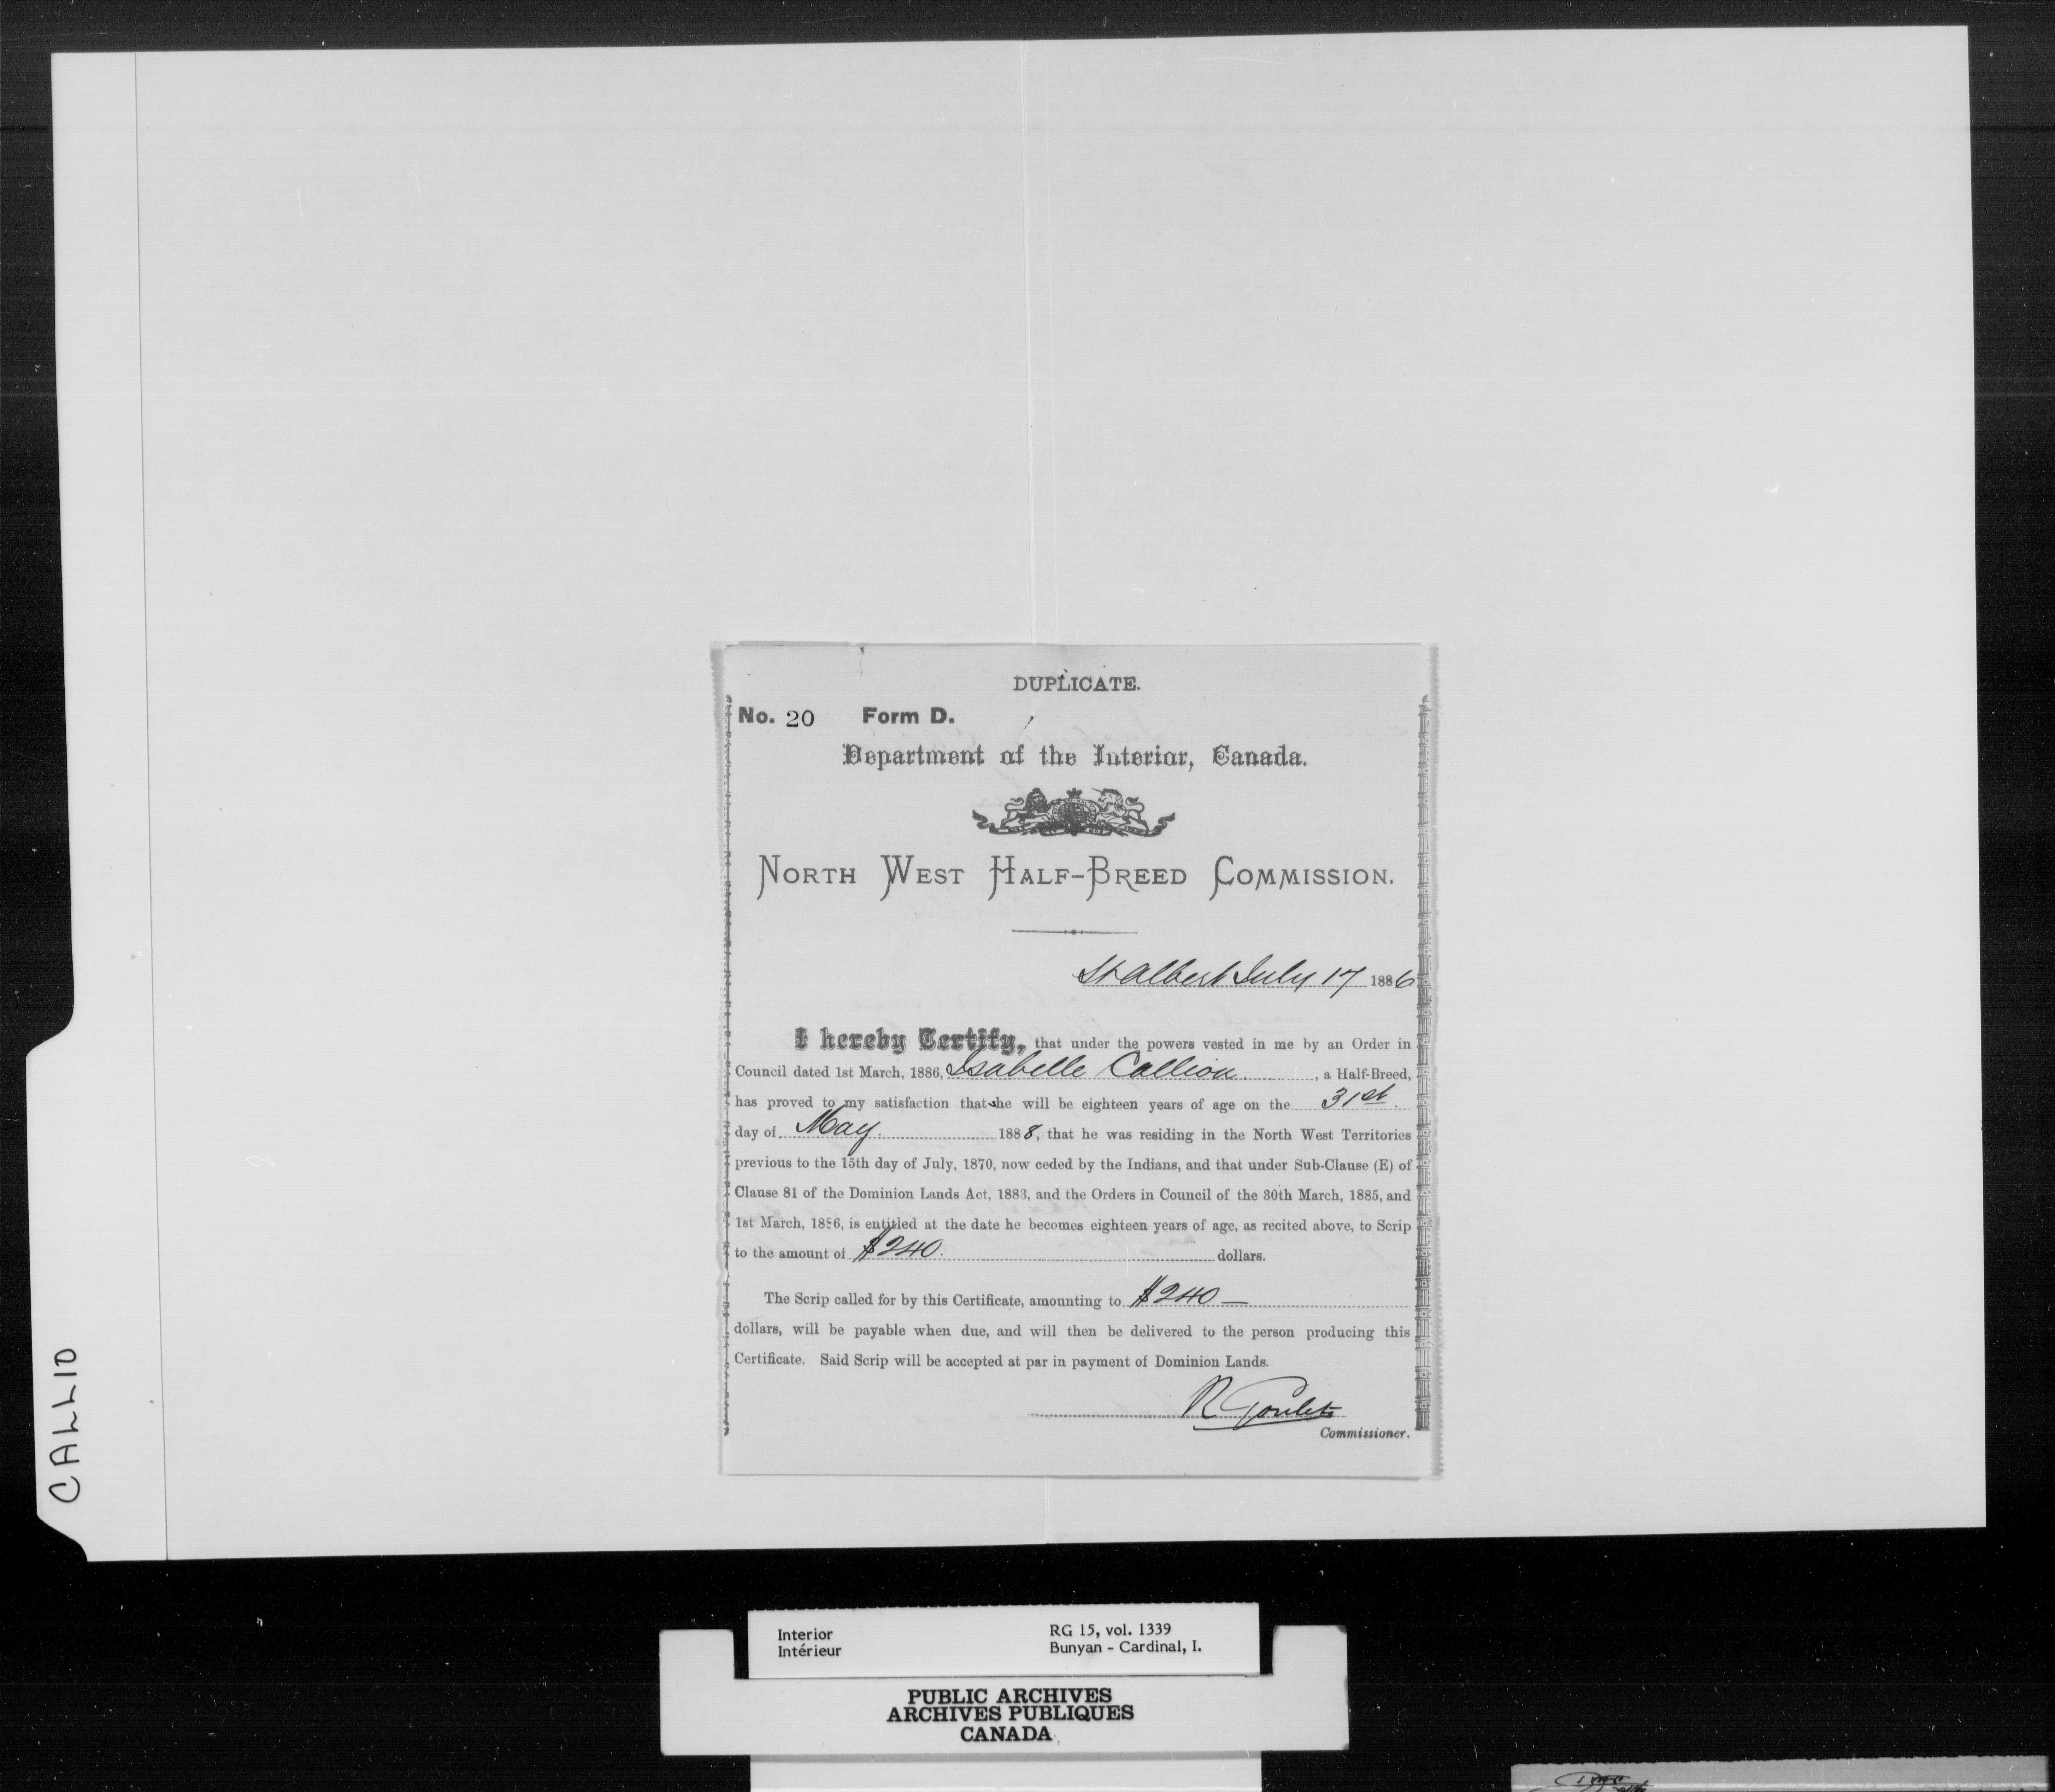 DUPLICATE.
No. 20 Form D.
Department of the Interior, Canada.
NORTH WEST HALF-BREED COMMISSION.
St Albert July 17 1886
I hereby Certify, that under the powers vested in me by an Order in
Council dated 1st March, 1886, Isabelle Callion , a Half-Breed,
has proved to my satisfaction that she will be eighteen years of age on the 31st.
day of May. 1888, that he was residing in the North West Territories
previous to the 15th day of July, 1870, now ceded by the Indians, and that under Sub-Clause (E) of
Clause 81 of the Dominion Lands Act, 1883, and the Orders in Council of the 30th March, 1885, and
1st March, 1886, is entitled at the date he becomes eighteen years of age, as recited above, to Scrip
to the amount of $240. dollars.
The Scrip called for by this Certificate, amounting to $240 —
dollars, will be payable when due, and will then be delivered to the person producing this
Certificate. Said Scrip will be accepted at par in payment of Dominion Lands.
R Goulet
Commissioner.
CALLIO
Interior RG 15, vol. 1339
Intérieur Bunyan - Cardinal, I.
PUBLIC ARCHIVES
ARCHIVES PUBLIQUES
CANADA